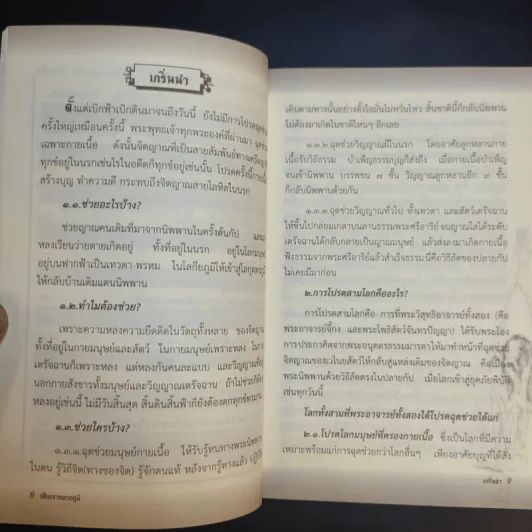 เกริ่นนำ
ตั้งแต่เบิกฟ้าเบิกดินมาจนถึงวันนี้ ยังไม่มีการโปรดฉุดช่วย
ครั้งใหญ่เหมือนครั้งนี้ พระพุทธเจ้าทุกพระองค์ที่ผ่านมา
เฉพาะกายเนื้อ ดังนั้นจิตญาณที่เป็นสายสัมพันธ์ทาง
ทุกข์อยู่ในนรกเช่นไรในอดีตก็ทุกข์อยู่เช่นนั้น โปรดครั้งนี้
สร้างบุญ ทำความดี กระทบถึงจิตญาณสายโลหิตในนรก
๑.๑.ช่วยอะไรบ้าง?
ช่วยญาณคนเดิมที่มาจากนิพพานในครั้งต้นกัป
หลงเวียนว่ายตายเกิดอยู่ ทั้งที่อยู่ในนรก อยู่ในโลกมนุษย์
อยู่บนฟากฟ้าเป็นเทวดา-พรหม ในโลกียภูมิให้เข้าสู่โลกุตตรภูมิ
ให้กลับบ้านเดิมแดนนิพพาน
๑.๒.ทำไมต้องช่วย?
เพราะความหลงความยึดติดในวัตถุทั้งหลาย ของจิตญาณ
ทั้งที่อยู่ในกายมนุษย์และสัตว์ ในกายมนุษย์เพราะหลง ใน
เดรัจฉานก็เพราะหลง แต่หลงกันคนละแบบ และวิญญาณที่อยู่
นอกกายสังขารทั้งมนุษย์และวิญญาณเดรัจฉาน ถ้าไม่ช่วยก็ต้อง
หลงอยู่เช่นนี้ ไม่มีวันสิ้นสุด สิ้นดินสิ้นฟ้าก็ยังต้องตกทุกข์ทรมาน
๑.๓.ช่วยใครบ้าง?
๑.๓.๑.ฉุดช่วยมนุษย์กายเนื้อ ให้รับรู้หนทางพระนิพพาน
ในตน รู้วิถีจิต(ทางของจิต) รู้จักตนแท้ หลังจากรู้ทางแล้ว
8 เสียงจากนรกภูมิ
เดินตามทางนั้นอย่างตั้งใจมั่นไม่หวั่นไหว สิ้นชาตินี้ก็กลับนิพพาน
ไม่ต้องมาเกิดในชาติไหนๆ อีกเลย
๑.๓.๒.ฉุดช่วยวิญญาณผีในนรก โดยอาศัยลูกหลานกาย
เนื้อรับวิถีธรรม บำเพ็ญธรรมบุญก็ส่งถึง เมื่อกายเนื้อบำเพ็ญ
จนเข้านิพพาน บรรพชน ๗ ชั้น วิญญาณลูกหลานอีก ๙ ชั้น
ก็กลับนิพพานด้วยกัน
๑.๓.๓.ฉุดช่วยวิญญาณทั่วไป ทั้งเทวดา และสัตว์เดรัจฉาน
ให้ขึ้นไปกล่อมเกลาบนลานธรรมพระศรีอาริย์ จนญาณใสได้ระดับ
เดรัจฉานได้กลับกลายเป็นญาณมนุษย์ แล้วส่งลงมาเกิดกายเนื้อ
ฟังธรรมจากพระศรีอาริย์แล้วสำเร็จธรรม นี่คือวิธีลัดของปลายกัป
ไม่เคยมีมาก่อน
๒.การโปรดสามโลกคืออะไร?
การโปรดสามโลกคือ การที่พระวิสุทธิอาจารย์ทั้งสอง (คือ
พระอาจารย์จี้กง และพระโพธิสัตว์จันทรปัญญา) ได้รับพระโอง
การ ประกาศิตจากพระอนุตตรธรรมมารดาให้มาทำหน้าที่ฉุดช่วย
จิตญาณของเวไนยสัตว์ให้กลับสู่แหล่งเดิมของจิตญาณ คือเมือง
พระนิพพานด้วยวิถีลัดตรงในปลายกัป เมื่อโลกเข้าสู่ยุคภัยพิบัติ
เช่นทุกวันนี้
โลกทั้งสามที่พระอาจารย์ทั้งสองได้โปรดฉุดช่วยได้แก่
๒.๑.โปรดโลกมนุษย์ที่ครองกายเนื้อ ซึ่งเป็นโลกที่มีความ
เหมาะพร้อมแก่การฉุดช่วยกว่าโลกอื่นๆ เพียงอาศัยบุญที่ได้สั่ง
เกริ่นนำ 9